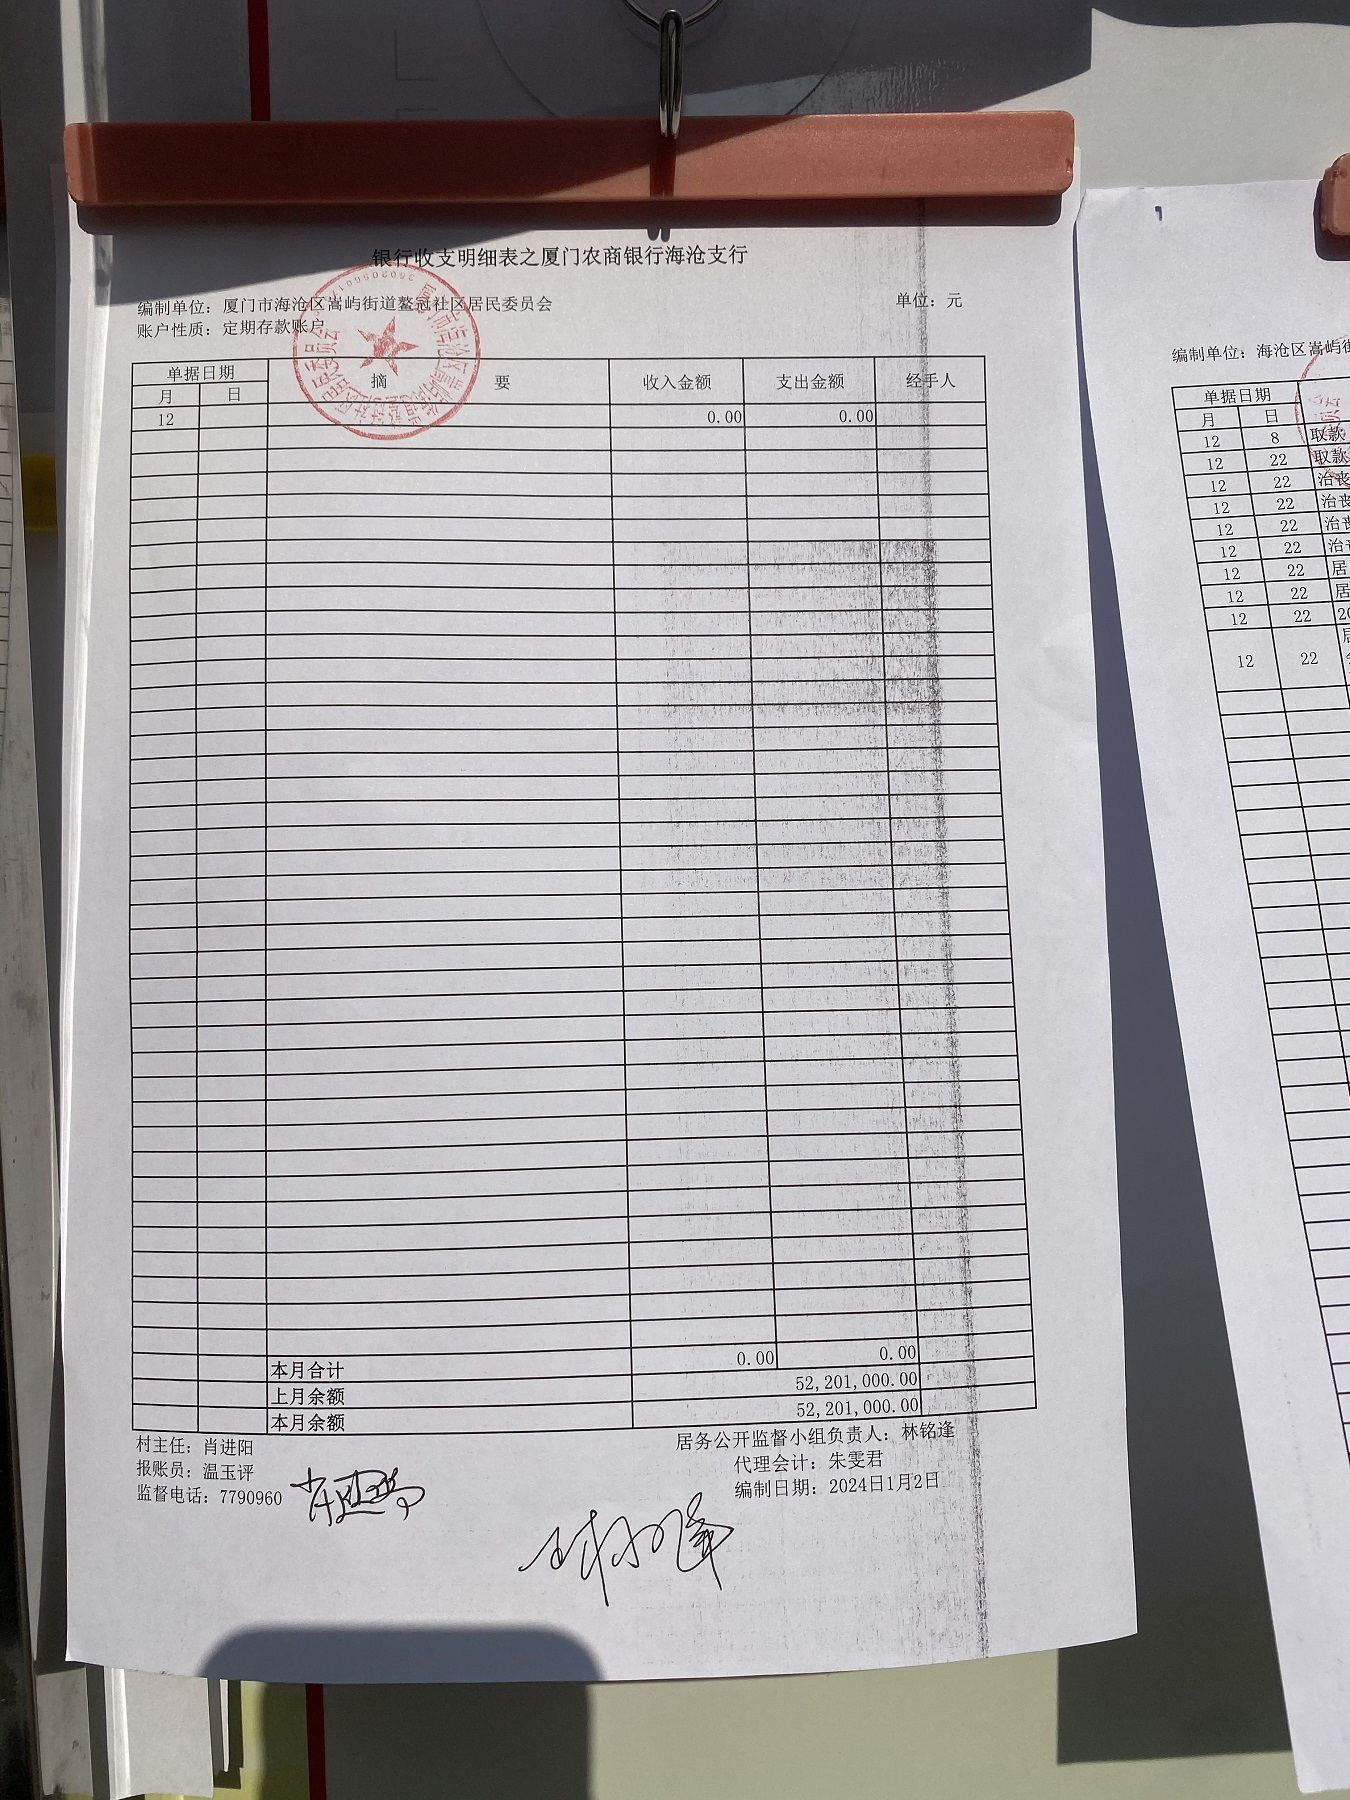 银行收支明细表之厦门农商银行海沧支行
编制单位：厦门市海沧区嵩屿街道鳌冠社区居民委员会 单位：元
账户性质：定期存款账户
单据日期 摘 要 收入金额 支出金额 经手人
月 日
12 0.00 0.00
本月合计 0.00 0.00
上月余额 52,201,000.00
本月余额 52,201,000.00
村主任：肖进阳 居务公开监督小组负责人：林铭逢
报账员：温玉评 代理会计：朱雯君
监督电话：7790960 编制日期：2024年1月2日
编制单位：海沧区嵩屿街
单据日期
月 日
12 8 取款
12 22 取款
12 22 治丧
12 22 治丧
12 22 治丧
12 22 治丧
12 22 居
12 22 居
12 22 20
12 22 居